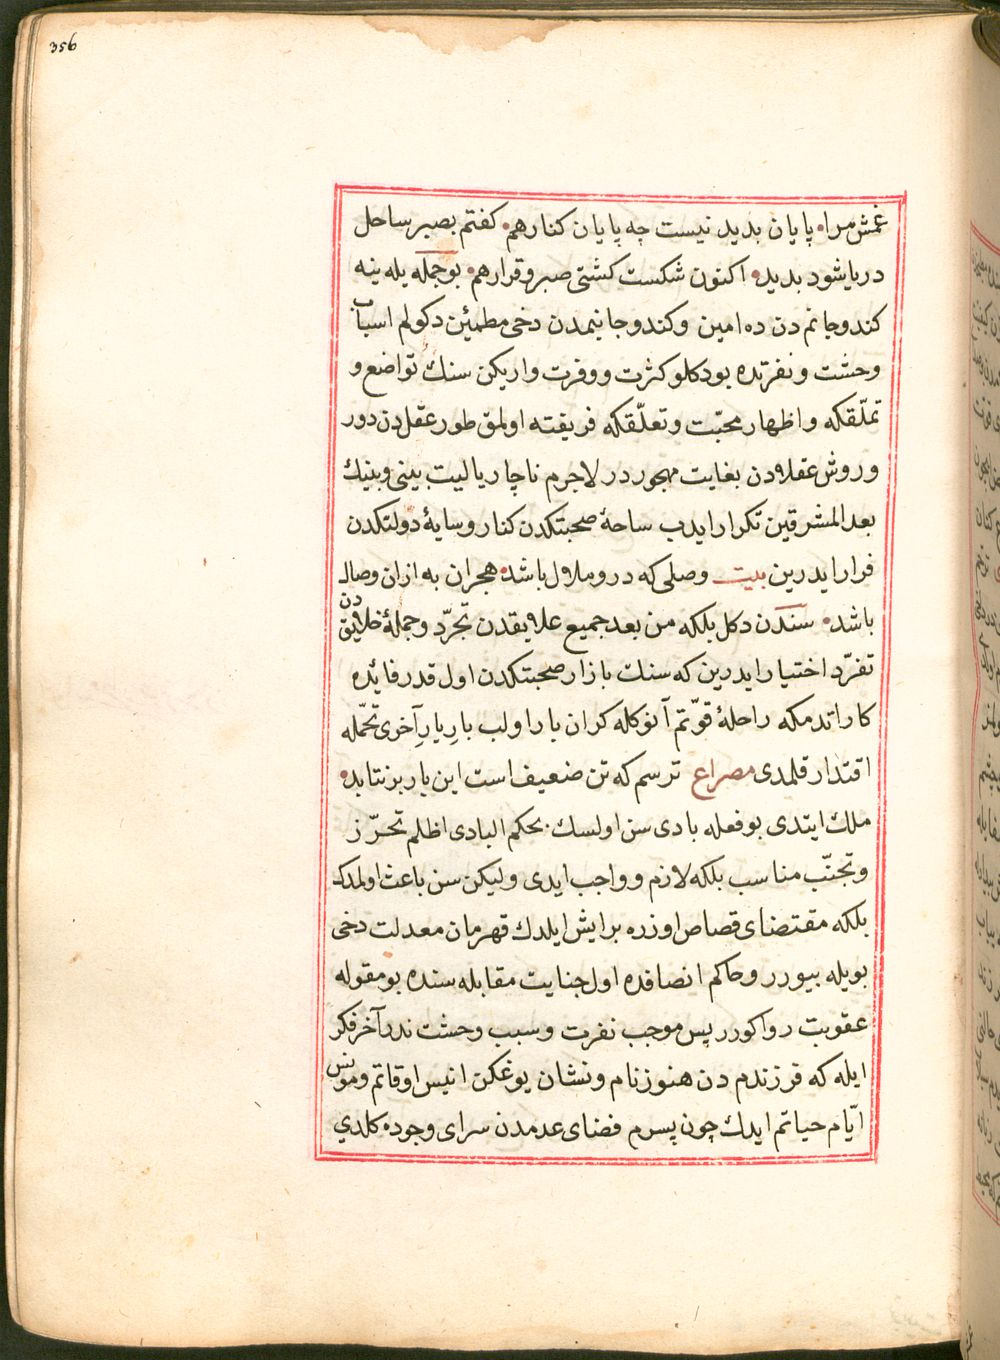 356
غمش مرا • پایان بدید نیست چه پایان کنارهم • کفتم بصبر ساحل
دریا شود بدید • اکنون شکست کشتی صبر و قرارهم • بو جمله یله ینه
کندو جانم دن ده امین و کندو جانیمدن دخی مطمئن دکولم اسباب
وحشت و نفرتده بو دکلو کثرت و وفرت واریکن سنك تواضع و
تملّقکه و اظهار محبّت و تعلّقکه فریفته اولمق طور عقل دن دور
و روش عقلادن بغایت مهجور در لاجرم ناچار یا لیت بینی و بینك
بعد المشرقین تکرار ایدب ساحهٔ صحبتکدن کنار و سایهٔ دولتکدن
فرار ایدرین بیت وصلی که درو ملال باشد • هجران به ازان وصال
باشد • سندن دکل بلکه من بعد جمیع علایقدن تجرّد و جملهٔ خلایق دن
تفرّد اختیار ایدرین که سنك بازار صحبتکدن اول قدر فائده
کار اتدمکه راحلهٔ قوّتم آنوکله کران بار اولب بارِ یارِ آخری تحمّله
اقتدار قلمدی مصراع ترسم که تن ضعیف است این بار برنتابد •
ملك ایتدی بو فعله بادی سن اولسك بحکم البادی اظلم تحرّز
و تجنّب مناسب بلکه لازم و واجب ایدی ولیکن سن باعث اولمدك
بلکه مقتضای قصاص اوزره بر ایش ایلدك قهرمان معدلت دخی
بویله بیورر و حاکم انصافده اول جنایت مقابله سنده بو مقوله
عقوبت روا کورر پس موجب نفرت و سبب وحشت ندر آخر فکر
ایله که فرزندم دن هنوز نام و نشان یوغکن انیس اوقاتم و مونس
ایّام حیاتم ایدك چون پسرم فضای عدمدن سرای وجوده کلدی